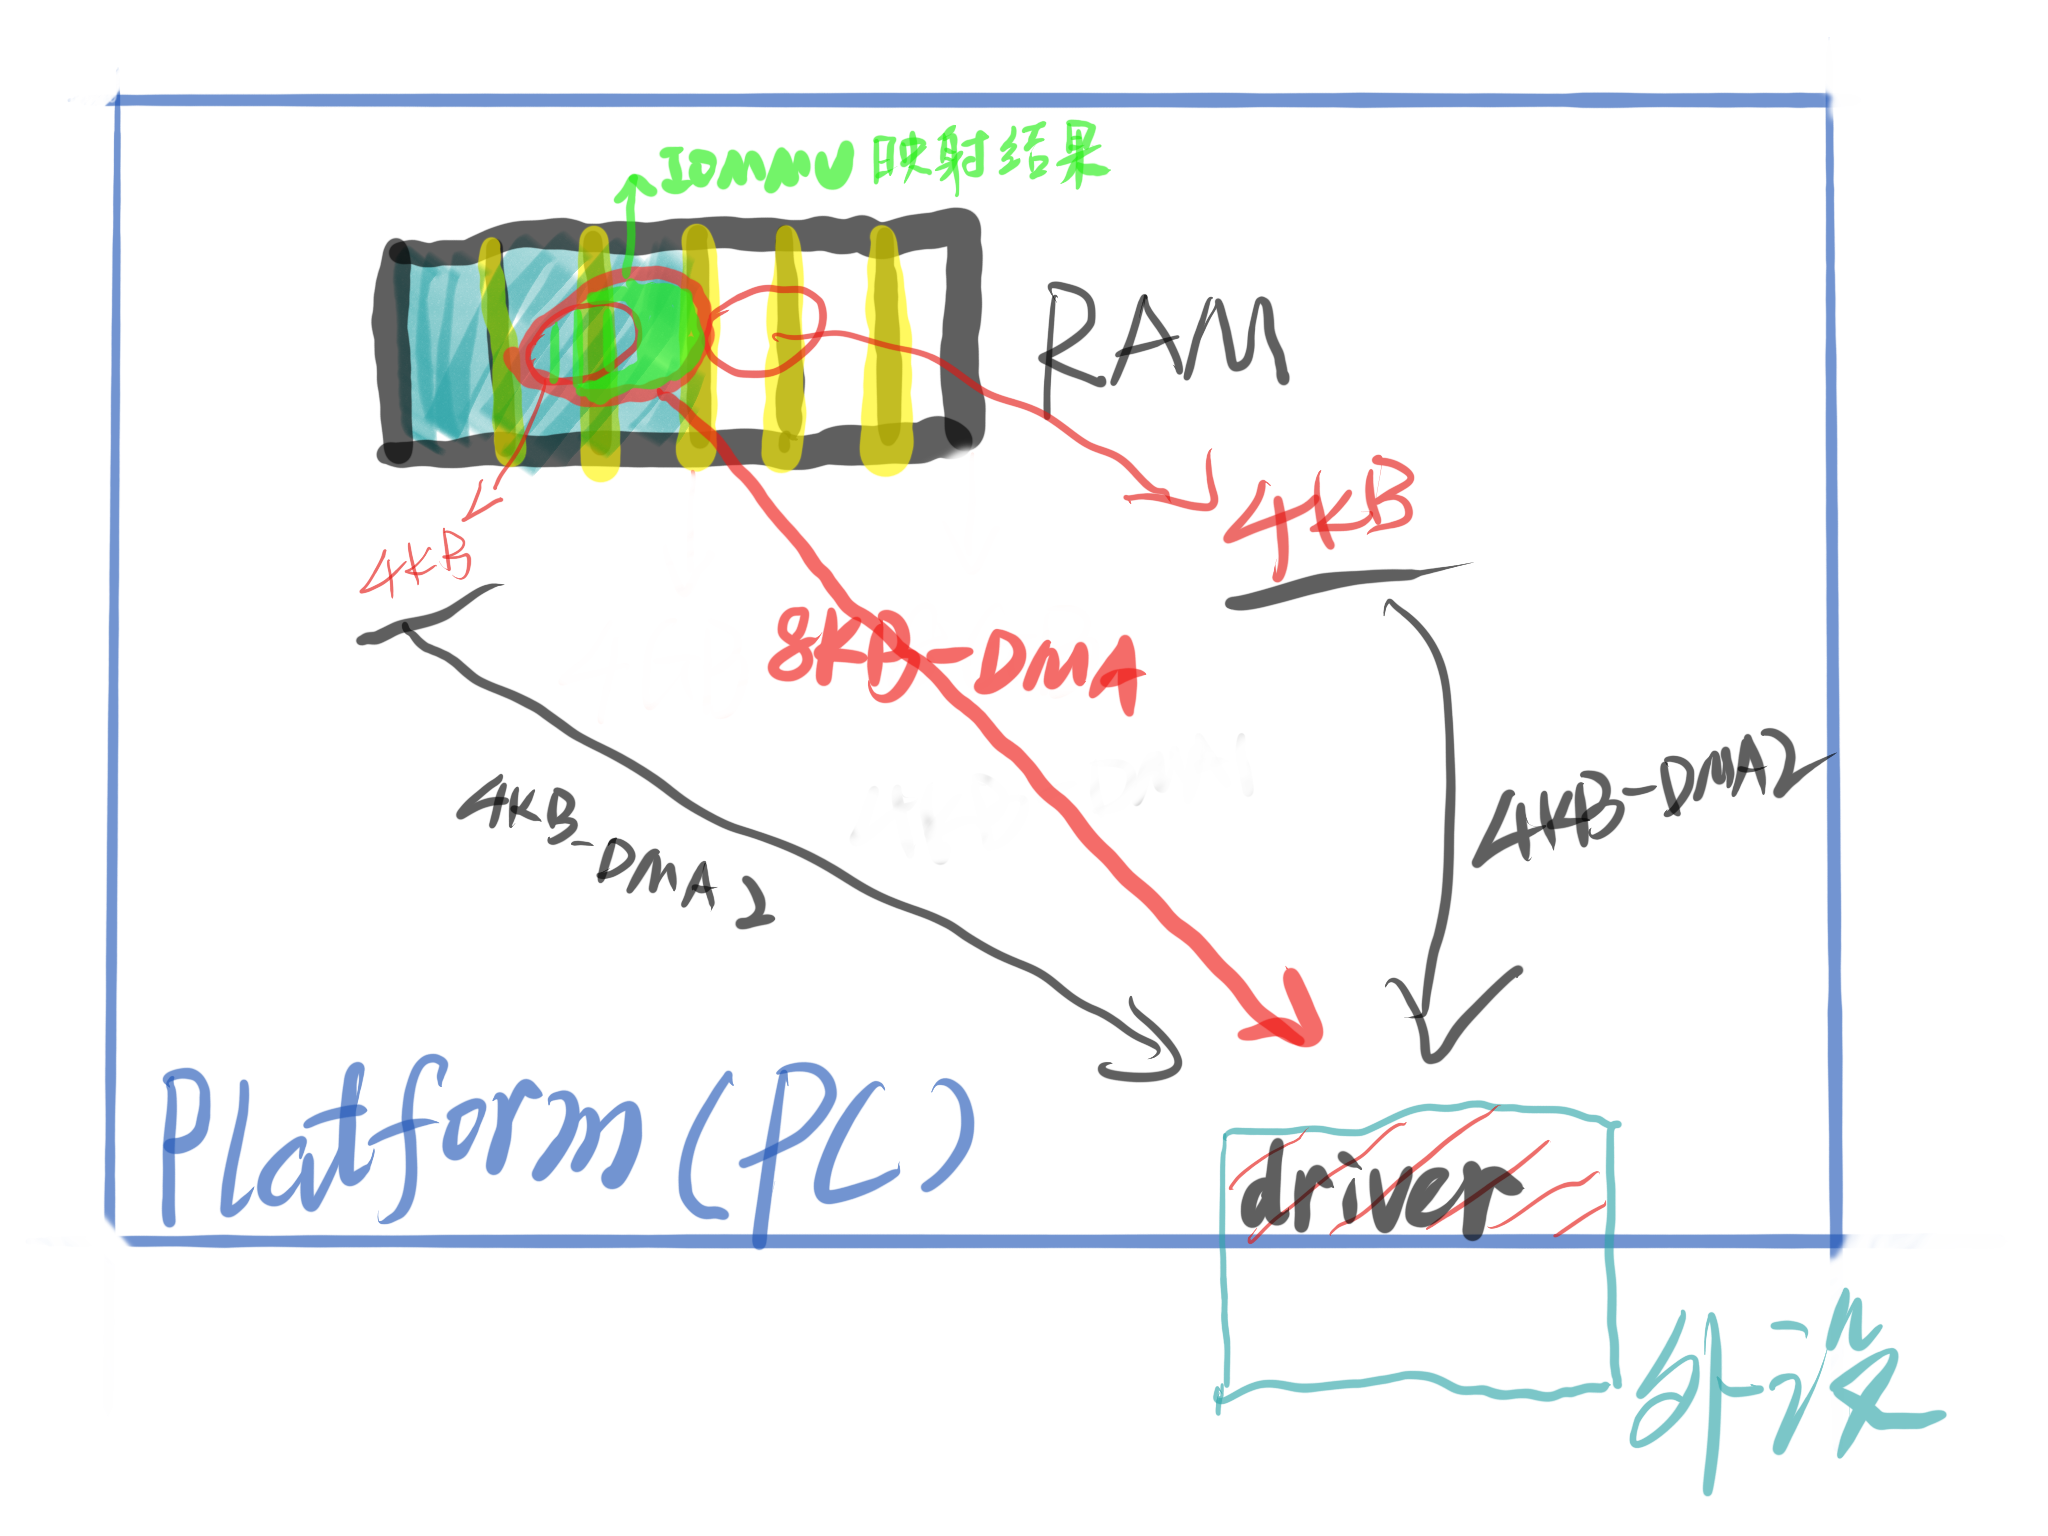 IOMMU 映射结果
RAM
4KB
4KB
8KB-DMA
4KB-DMA2
4KB-DMA2
Platform(PC)
driver
外设